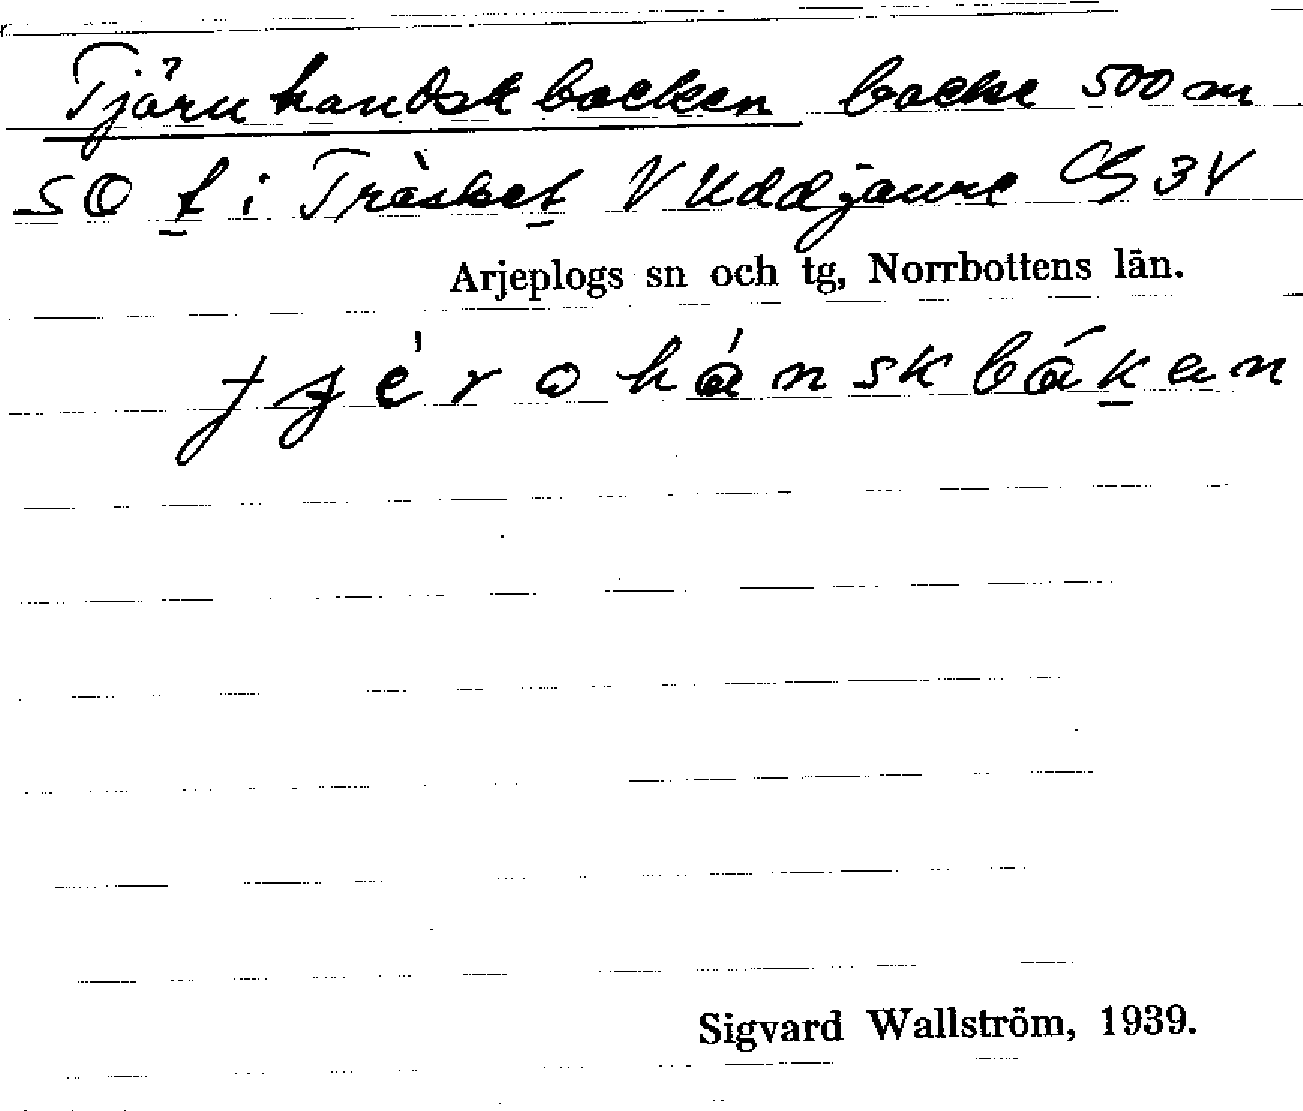 Tjärnhandskbacken backe 500 m
SO t i Träsket V Uddjaure CG 3V
Arjeplogs sn och tg, Norrbottens län.
ʈʂérohánskbákan
Sigvard Wallström, 1939.